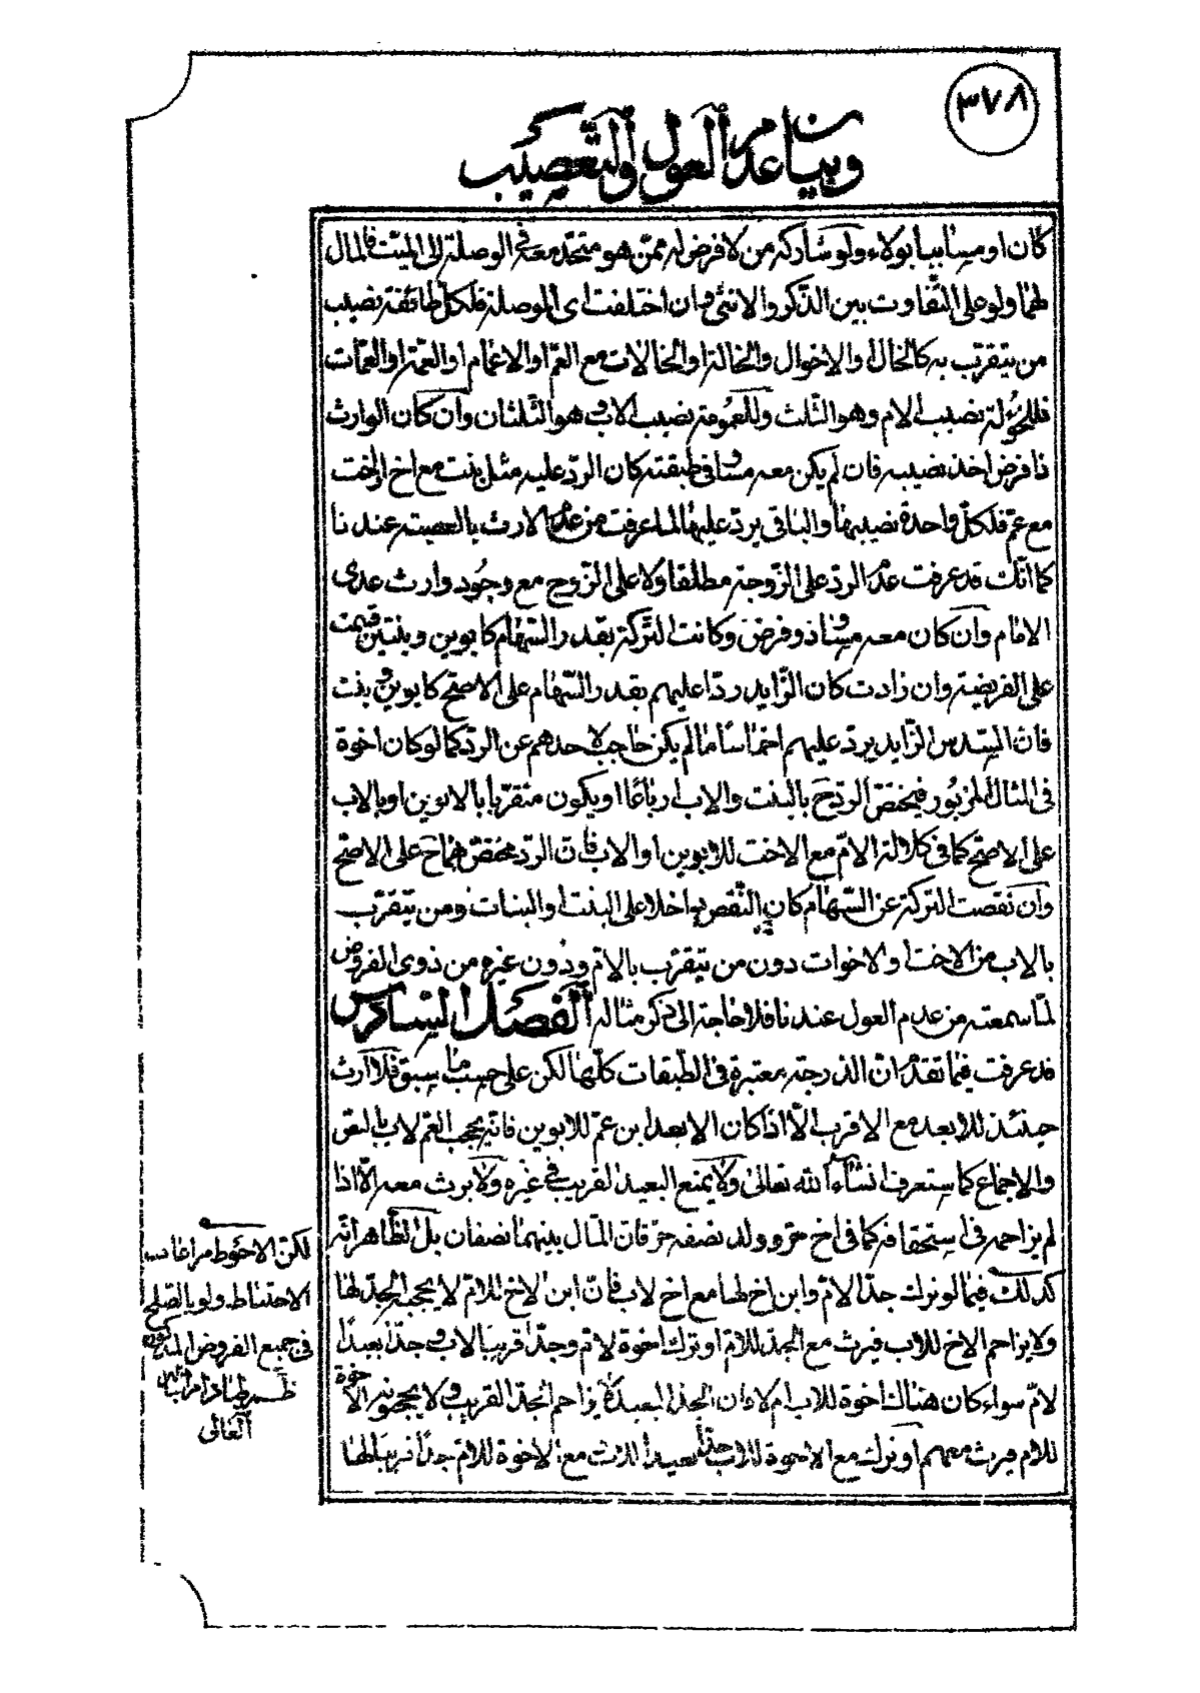 ٣٧٨
وبيان عدم العول والتعصيب
كان او مسابيا بولاء ولو شاركه من لا فرض له ممّن هو متحد معه في الوصلة الى الميّت فالمال
لهما ولو على التّفاوت بين الذّكر والانثى وان اختلفت اى الوصلة فلكل طائفة نصيب
من يتقرّب به كالخال او الاخوال والخالة او الخالات مع العمّ او الاعمام او العمّة او العمّات
فللخؤلة نصيب الام وهو الثّلث وللعمومة نصيب الاب وهو الثّلثان وان كان الوارث
ذا فرض اخذ نصيبه فان لم يكن معه مساو في طبقته كان الردّ عليه مثل بنت مع اخ او اخت
مع عمّ فلكلّ واحدة نصيبها والباقى يردّ عليها لما عرفت من عدم الارث بالعصبة عندنا
كما انّك قد عرفت عدم الردّ على الزّوجة مطلقا ولا على الزّوج مع وجود وارث عدى
الامام وان كان معه مساو ذو فرض وكانت التّركة بقدر السّهام كابوين وبنتين قسمت
على الفريضة وان زادت كان الزّايد ردّا عليهم بقدر السّهام على الاصحّ كابوين وبنت
فان السّدس الزّايد يردّ عليهم اخماسا ما لم يكن حاجب لاحدهم عن الردّ كما لو كان اخوة
فى المثال المزبور فيختصّ الردّ ح بالبنت والاب ارباعا او يكون متقرّبا بالابوين او بالاب
على الاصحّ كما فى كلالة الامّ مع الاخت للابوين او الاب فانّ الردّ مختصّ بهما ح على الاصحّ
وان نقصت التركة عن السّهام كان النّقص داخلا على البنت او البنات ومن يتقرّب
بالاب من الاخت او الاخوات دون من يتقرّب بالامّ ودون غيره من ذوى الفروض
لما سمعته من عدم العول عندنا فلا حاجة الى ذكر مثاله الفصل السّادس
قد عرفت فيما تقدّم انّ الدّرجة معتبرة فى الطّبقات كلّها لكن على حسب ما سبق فلا ارث
حينئذ للابعد مع الاقرب الّا اذا كان الابعد ابن عمّ للابوين فانّه يحجب العمّ لاب بالنّص
والاجماع كما ستعرف انشاء الله تعالى ولا يمنع البعيد القريب فى غيره ولا يرث معه الّا اذا
لم يزاحمه فى استحقاقه كما فى اخ حرّ وولد نصفه حرّ فانّ المال بينهما نصفان بل الظّاهر انّه
كذلك فيما لو ترك جدّا لامّ وابن اخ لها مع اخ لاب فانّ ابن الاخ للامّ لا يحجبه الجدّ لها
ولا يزاحم الاخ للاب فيرث مع الجدّ للامّ او ترك اخوة لامّ وجدّا قريبا لاب وجدّا بعيدا
لامّ سواء كان هناك اخوة للاب ام لا فان الجدّ البعيد لا يزاحم الجدّ القريب ولا يحجبونه الاخوة
للام فيرث معهم او ترك مع الاخوة للاب جدّا بعيدا للاب مع الاخوة للامّ جدّا قريبا لها
لكن الاحوط مراعات
الاحتياط ولو بالصّلح
فى جميع الفروض المذكورة
العالى